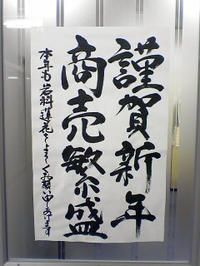 謹賀新年
商売繁盛
本年も岩科蓮花をよろしくお願い申し上げます